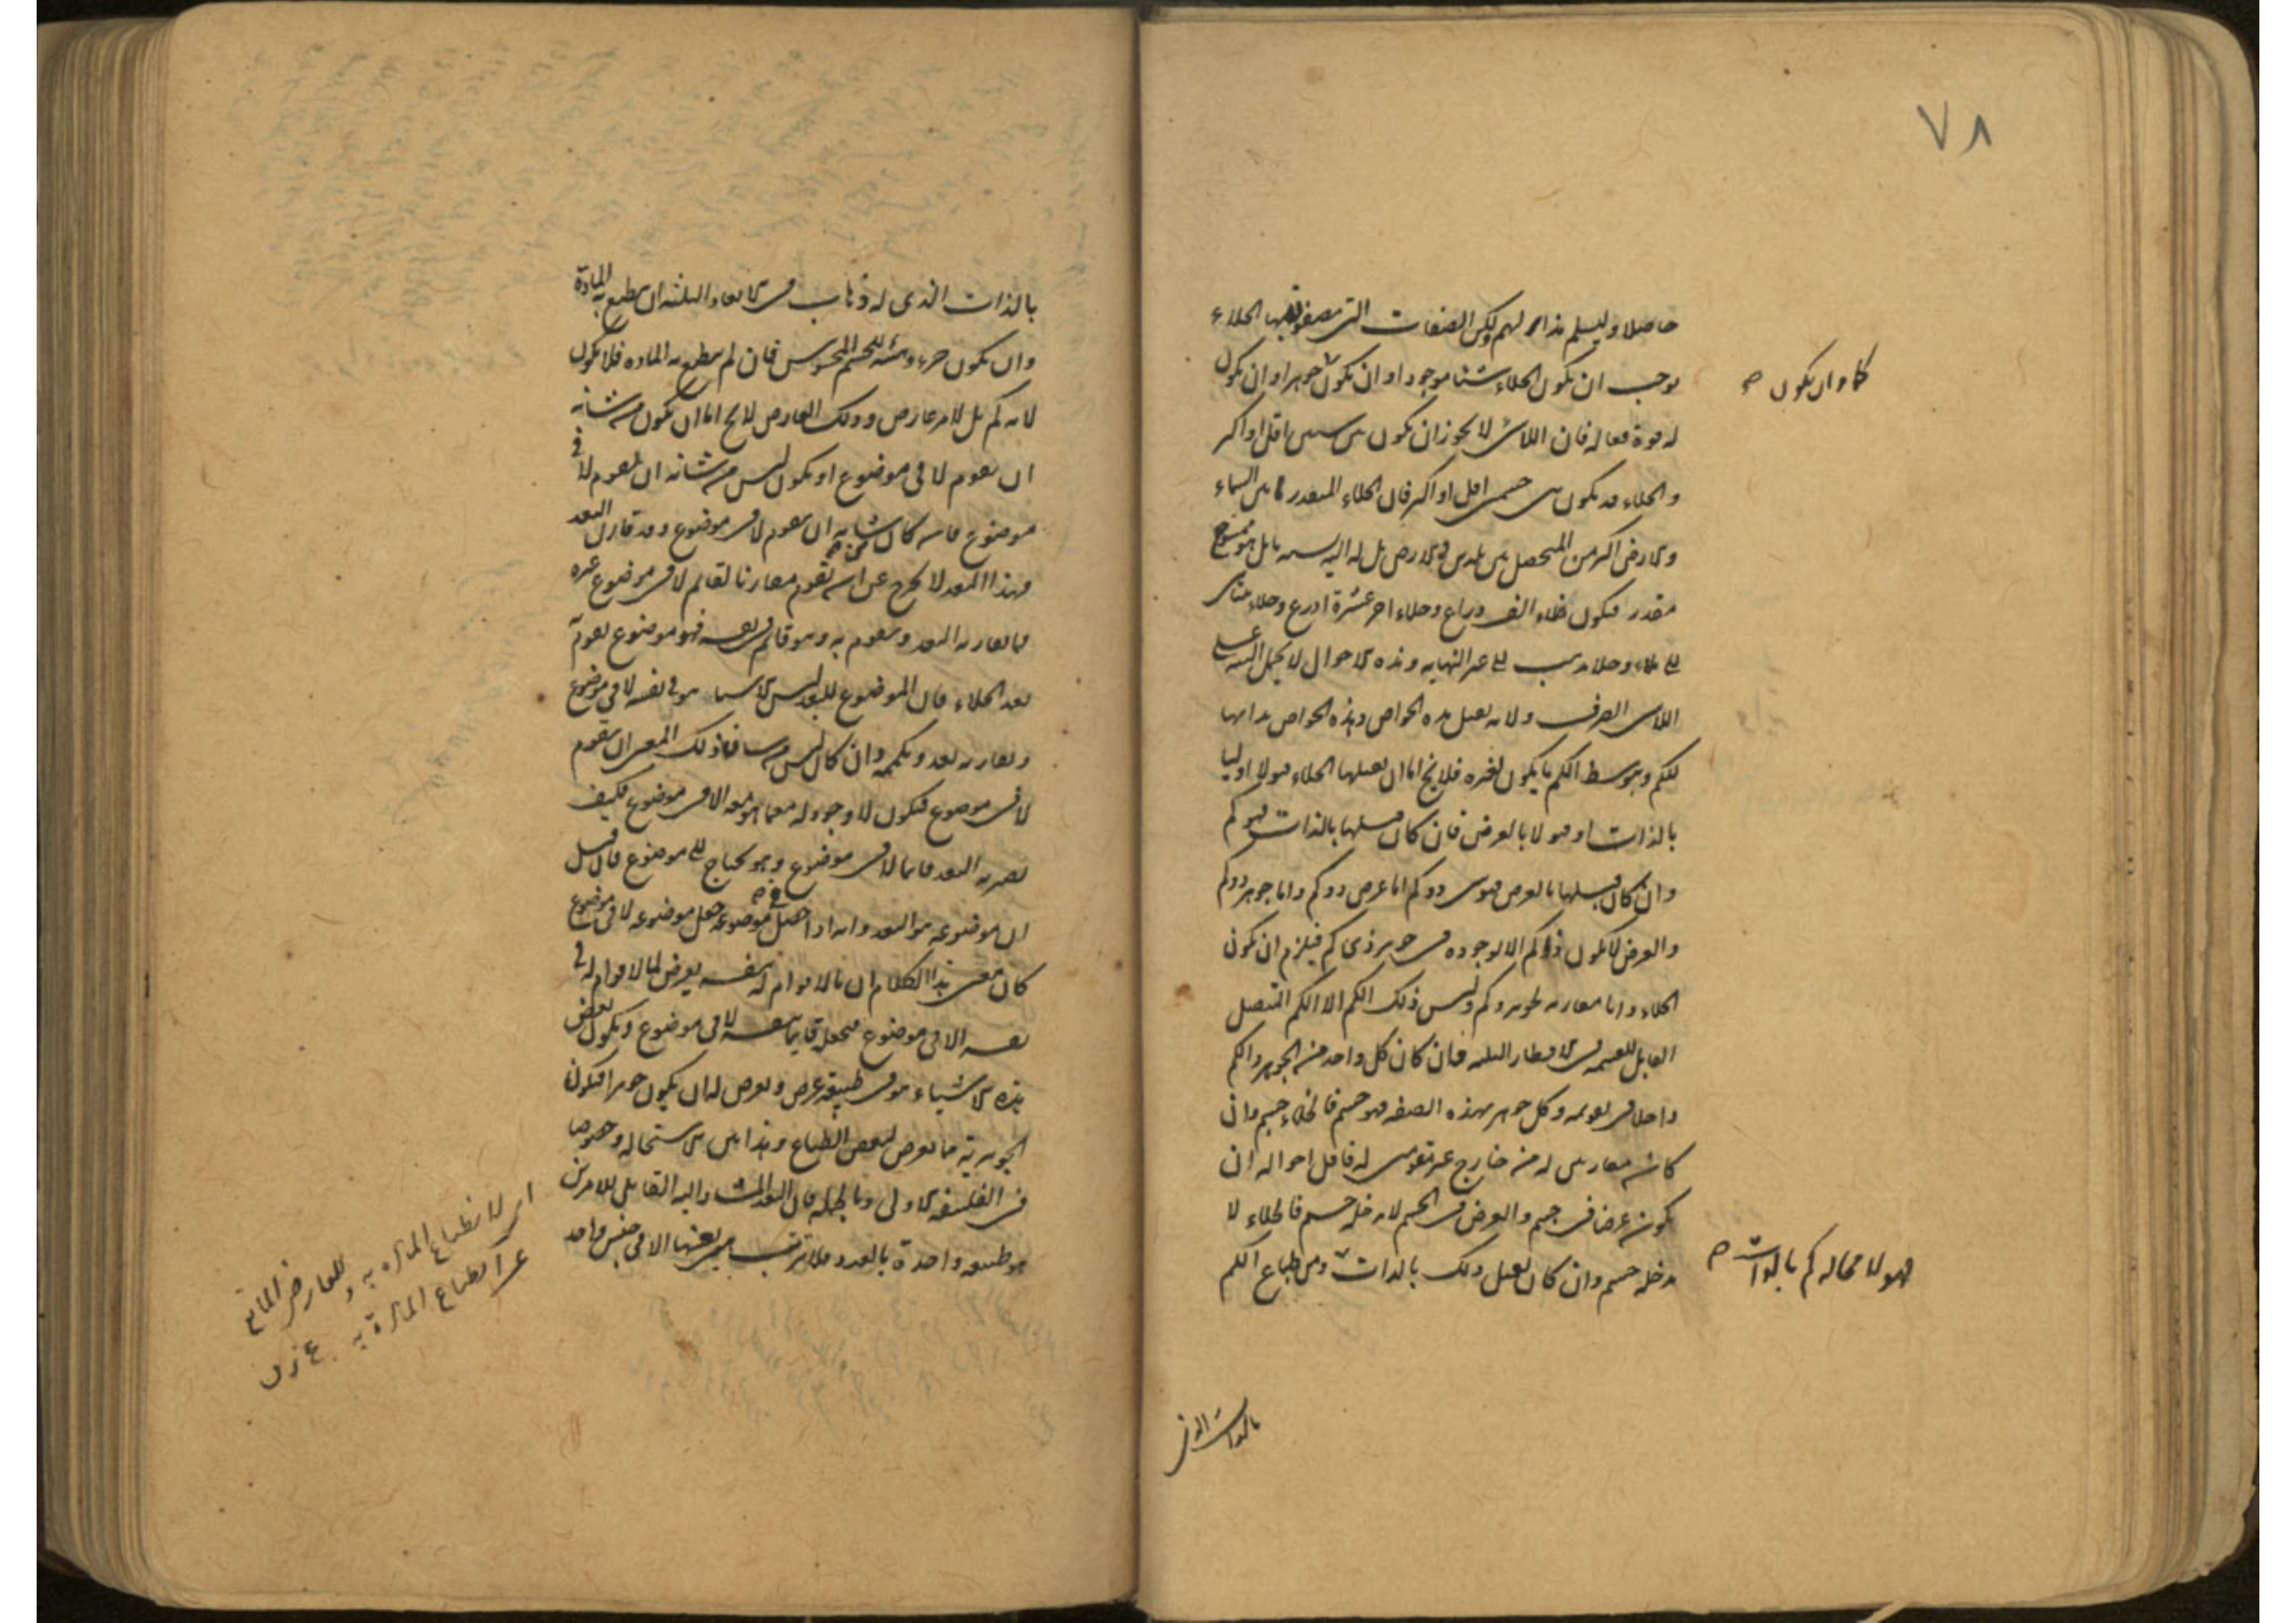 ٧٨
حاصلا وليسلم هذا لهم ولكن الصفات التى يصفون بها الخلاء
يوجب ان يكون الخلاء شيئا موجودا او ان يكون جوهرا وان يكون
كما وان يكون ص
له قوة فعاله فان اللاشى لا يجوز ان يكون بين شيئين اقل او اكثر
والخلاء قد يكون بين جسمين اقل او اكثر فان الخلاء المقدر ما بين السماء
والارض اكثر من المتحصل بين بلدين فى الارض بل له اليه نسبه ما بل هو ممسوح
مقدر فيكون خلاء الف ذراع وخلاء اخر عشرة اذرع وخلاء متناهى
الى ملاء وخلاء يذهب الى غير النهايه وهذه الاحوال لا يحمل البته على
اللاشى الصرف ولانه يقبل هذه الخواص وهذه الخواص بذاتها
للكم وبتوسط الكم ما يكون لغيره فلا يخ اما ان يقبلها الخلاء قبولا اوليا
بالذات او قبولا بالعرض فان كان قبلها بالذات فهو كم
وان كان قبلها بالعرض فهو شى ذو كم اما عرض ذو كم واما جوهر ذو كم
والعرض لا يكون ذا كم الا لوجوده فى جوهر ذى كم فيلزم ان يكون
الخلاء ذاتا مقارنه لجوهر وكم وليس ذلك الكم الا الكم المتصل
القابل للقسمه فى الاقطار الثلثه فان كان كل واحد من الجوهر والكم
داخلا فى تقويمه وكل جوهر بهذه الصفه فهو جسم فالخلاء جسم وان
كانا مقارنين له من خارج غير مقومين له فاقل احواله ان
يكون عرضا فى جسم والعرض فى الجسم لا يدخله جسم فالخلاء لا
يدخله جسم وان كان يقبل ذلك بالذات ومن طباع الكم
فهو لا محاله كم بالذات ص
بالذات الذى
بالذات الذى له ذهاب فى الابعاد الثلثه ان ينطبع به المادة
وان يكون جزء وهيئه للجسم المحسوس فان لم ينطبع به الماده فلا يكون
لانه كم بل لامر عارض وذلك العارض لا يخ اما ان يكون من شانه
ان يقوم لا فى موضوع او يكون ليس من شانه ان يقوم لا فى
موضوع فان كان من شانه ان يقوم لا فى موضوع وقد قارن البعد
فهذا البعد لا يخرج عن انه يقوم مقارنا لقائم لا فى موضوع غيره
فما يقارنه البعد ويقوم به وهو قائم فى نفسه فهو موضوع يقوم
بعد الخلاء فان الموضوع للبعد ليس الا شيا هو فى نفسه لا فى موضوع
ويقارنه بعد ويكممه وان كان ليس من شان ذلك المعنى ان يقوم
لا فى موضوع فيكون لا وجود له مع ما هو معه الا فى موضوع فكيف
يصير به البعد قائما لا فى موضوع وهو محتاج الى موضوع فان قيل
ان موضوعه هو البعد وانه اذا حصل فى موضوعه جعل موضوعه لا فى موضوع
كان معنى هذا الكلام ان ما لا قوام له بنفسه يعرض لما لا قوام له فى
نفسه الا فى موضوع فيجعله قائما بنفسه لا فى موضوع ويكون بعض
هذه الاشياء هو فى طبيعته عرض ويعرض له ان يكون جوهرا فيكون
الجوهرية مما يعرض لبعض الطباع وهذا بين الاستحاله وخصوصا
فى الفلسفه الاولى وبالجمله فان البعد المشار اليه القابل للامرين
هو طبيعه واحدة بالعدد فلا ترتب هى بعينها الا فى جنس واحد
اى لانطباع المادة به وللعارض المانع
عن انطباع المادة به